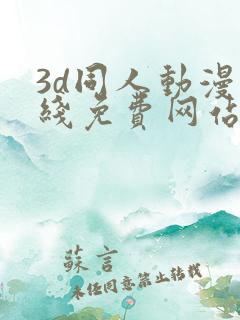 3d同人動漫
綫免費网佔
蘇言
未任同意禁止转载